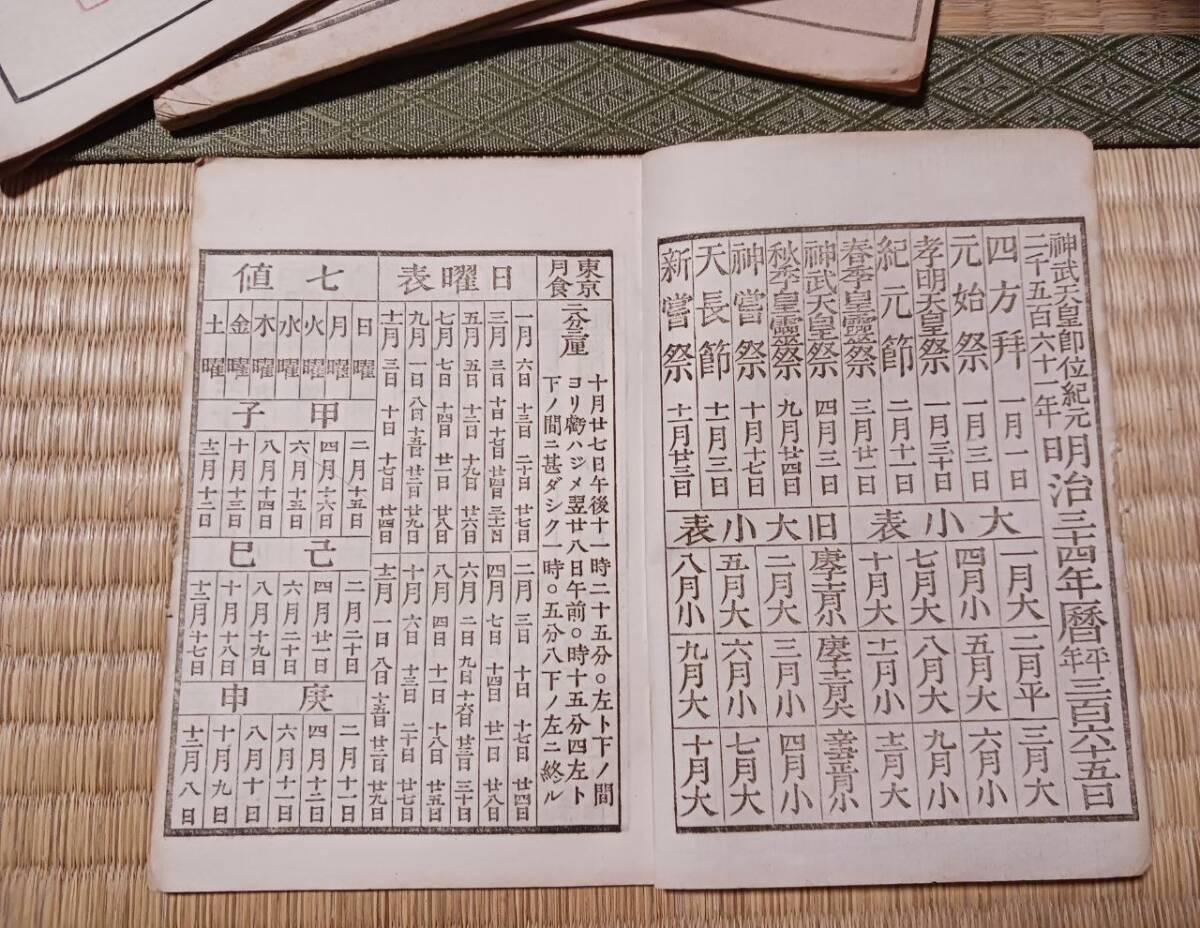 神武天皇即位紀元
二千五百六十一年
明治三十四年暦平年三百六十五日
四方拜 一月一日
元始祭 一月三日
孝明天皇祭 一月三十日
紀元節 二月十一日
春季皇靈祭 三月廿一日
神武天皇祭 四月三日
秋季皇靈祭 九月廿四日
神嘗祭 十月十七日
天長節 十一月三日
新嘗祭 十一月廿三日
大小表
一月大 二月平 三月大
四月小 五月大 六月小
七月大 八月大 九月小
十月大 十一月小 十二月大
旧大小表
庚子十一月小 庚子十二月大 辛丑正月小
二月大 三月小 四月小
五月大 六月小 七月大
八月小 九月大 十月大
東京月食
三分三厘
十月廿七日午後十一時二十五分〇左ト下ノ間
ヨリ虧ハジメ翌廿八日午前〇時十五分四左ト
下ノ間ニ甚ダシク一時〇五分八下ノ左ニ終ル
日曜表
一月 六日 十三日 二十日 廿七日
二月 三日 十日 十七日 廿四日
三月 三日 十日 十七日 廿四日 三十一日
四月 七日 十四日 廿一日 廿八日
五月 五日 十二日 十九日 廿六日
六月 二日 九日 十六日 廿三日 三十日
七月 七日 十四日 廿一日 廿八日
八月 四日 十一日 十八日 廿五日
九月 一日 八日 十五日 廿二日 廿九日
十月 六日 十三日 二十日 廿七日
十一月 三日 十日 十七日 廿四日
十二月 一日 八日 十五日 廿二日 廿九日
七値
日曜
月曜
火曜
水曜
木曜
金曜
土曜
甲子
二月十五日
四月十六日
六月十五日
八月十四日
十月十三日
十二月十二日
己巳
二月二十日
四月廿一日
六月二十日
八月十九日
十月十八日
十二月十七日
庚申
二月十一日
四月十二日
六月十一日
八月十日
十月九日
十二月八日